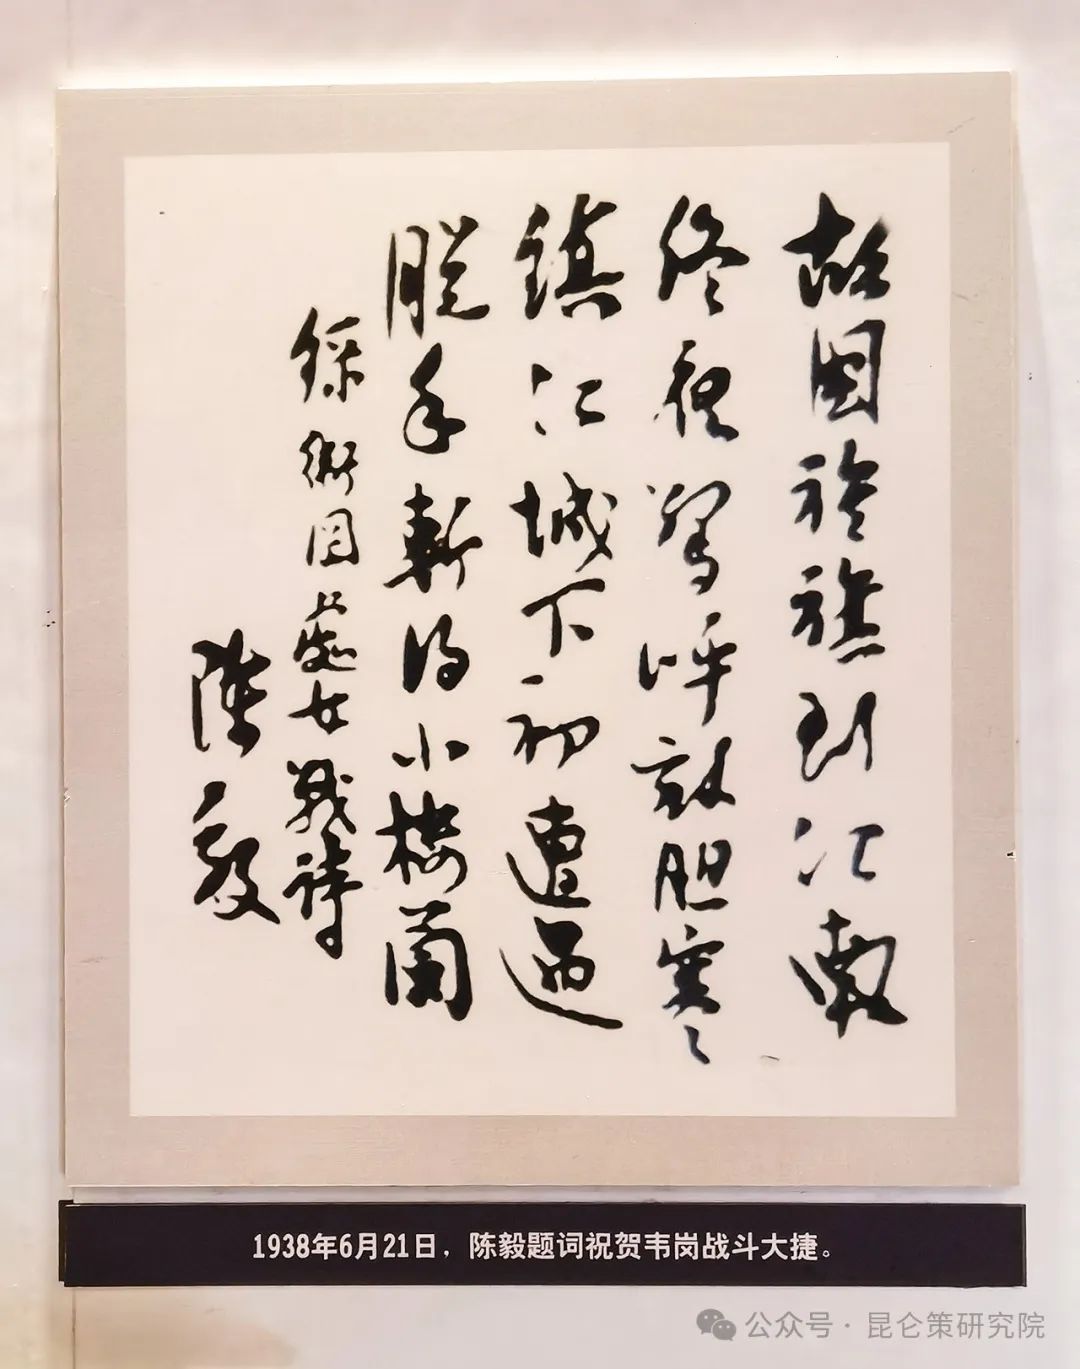 故國旌旗到江南
终夜驚呼敌胆寒
鎮江城下初遭遇
脱手斬得小楼蘭
録衛岡處女戰詩
陳毅
1938年6月21日，陈毅题词祝贺韦岗战斗大捷。
公众号·昆仑策研究院